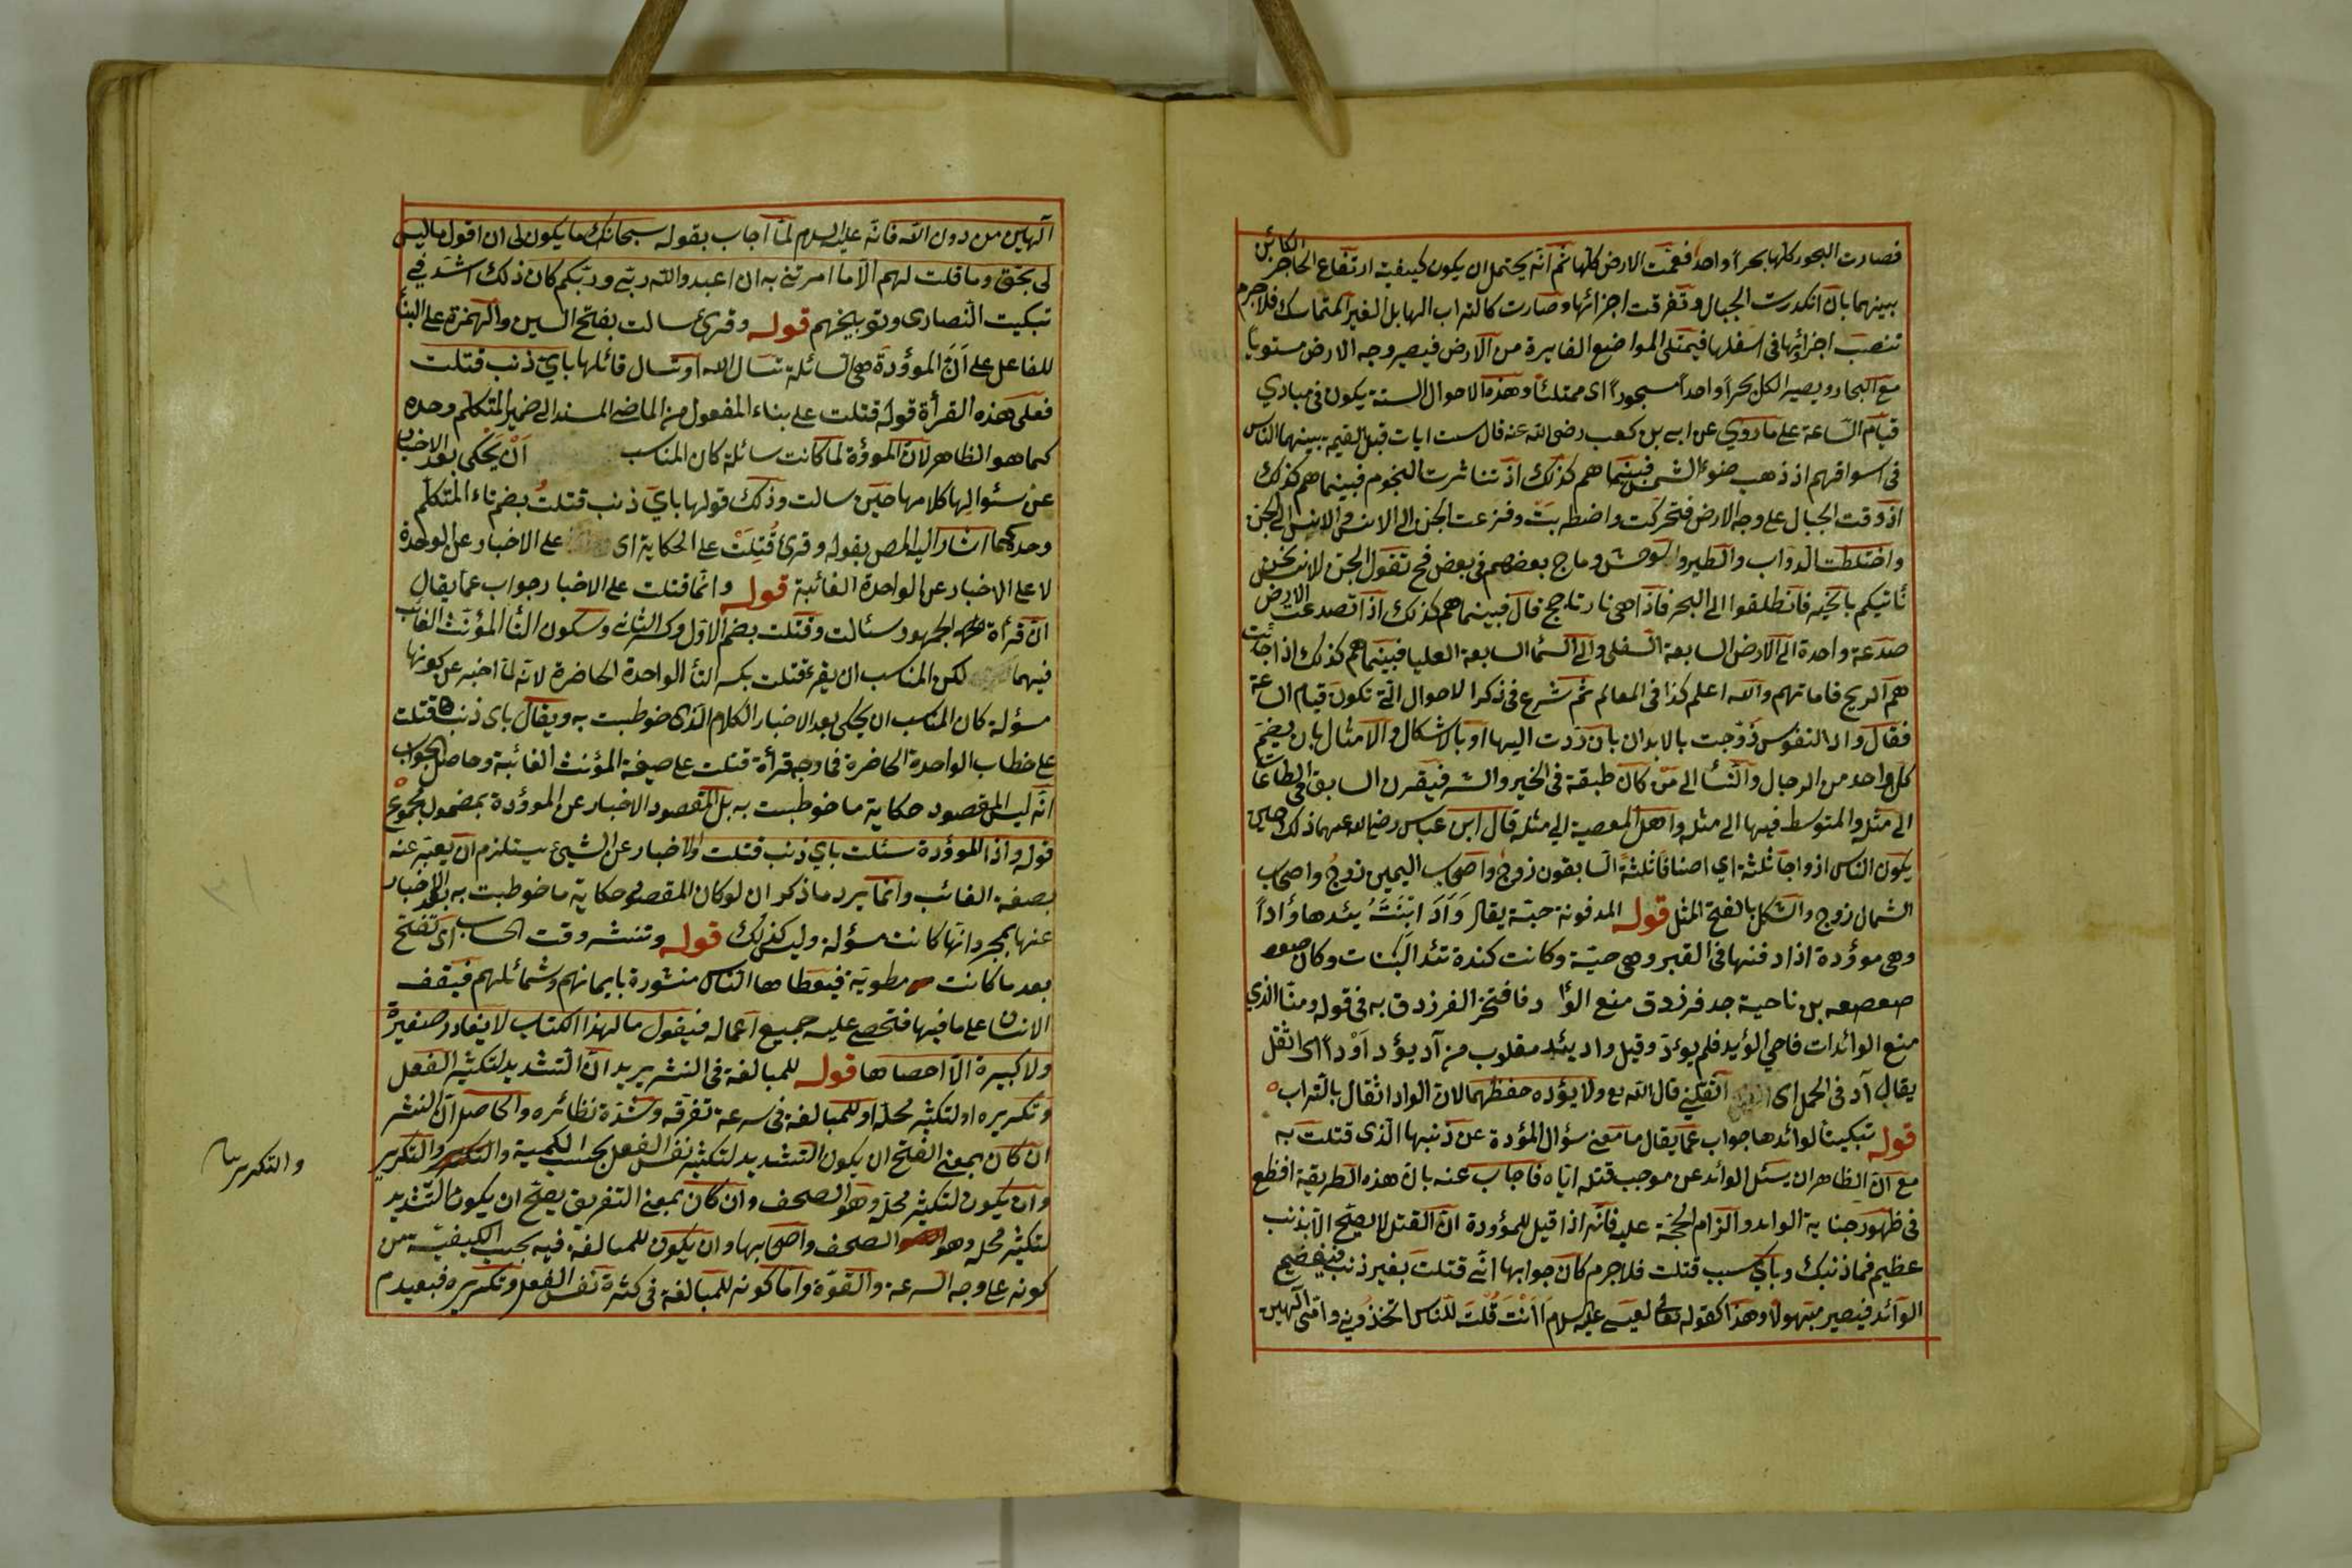 فصارت البحور كلها بحراً واحداً فعمّت الارض كلها ثم انّه يحتمل ان يكون كيفية ارتفاع الحاجز الكائن
بينهما بان انكدرت الجبال وتفرقت اجزائها وصارت كالتراب الهايل الغير المتماسك فلا جرم
تنصب اجزائها فى اسفلها فيمتلى المواضع الغايرة من الارض فيصير وجه الارض مستوياً
مع البحار ويصير الكل بحراً واحداً مسجوراً اى ممتلئاً وهذه الاحوال الستة يكون فى مبادي
قيام السّاعة على ما روي عن ابي بن كعب رضى الله عنه قال ست ايات قبل القيمة بينهما الناس
فى اسواقهم اذ ذهب ضوء الشمس فبينما هم كذلك اذ تناثرت النجوم فبينما هم كذلك
اذ وقعت الجبال على وجه الارض فتحركت واضطربت وفزعت الجن الى الانس والانس الى الجن
واختلطت الدواب والطير والوحش وماج بعضهم فى بعض فح تقول الجن للانس نحن
نأتيكم بالخبر فانطلقوا الى البحر فاذا هى نار تاجج قال فبينما هم كذلك اذا تصدعت الارض
صدعة واحدة الى الارض السابعة السفلى والى السماء السابعة العليا فبينما هم كذلك اذا جائت
هم الريح فاماتهم والله اعلم كذا فى المعالم ثم شرع فى ذكر الاحوال الّتي تكون قيام الساعة
فقال واذا النفوس زوّجت بالابدان بان رَدّت اليها او بالاشكال والامثال بان يضمّ
كل واحد من الرجال والنسأ الى من كان طبقة فى الخير والشر فيقرن السابق فى الطاعات
الى مثله والمتوسط فيها الى مثله واهل المعصية الى مثله قال ابن عباس رضى الله عنهما ذلك حين
يكون الناس ازواجا ثلثة اي اصنافا ثلثة السابقون زوج واصحاب اليمين زوج واصحاب
الشمال زوج والشكل بالفتح المثل قوله المدفونة حيّة يقال وَأَدَ ابْنَتَهُ يئدها وأداً
وهى موؤدة اذا دفنها فى القبر وهى حيّة وكانت كندة تئد البنات وكان
صعصعه بن ناحية جد فرزدق منع الوأد فافتخر الفرزدق به فى قوله ومنّا الذي
منع الوائدات فاحي الوئيد فلم يوئد وقيل واد يئد مقلوب من آد يؤد اَوْداً اى اثقل
يقال آد فى الحمل اى اثقلنى قال الله تع ولا يؤده حفظهما لان الواد اثقال بالتراب
قوله تبكيتاً لوائدها جواب عمّا يقال ما معنى سؤال المؤدة عن ذنبها الّذى قتلت به
مع انّ الظاهر ان يسئل الوائد عن موجب قتله ايّاه فاجاب عنه بان هذه الطريقة افظع
فى ظهور جناية الوايد والزام الحجة عليه فانّه اذا قيل للموؤدة انّ القتل لا يصحّ الّا بذنب
عظيم فما ذنبك وبأي سبب قتلت فلا جرم كان جوابها انّى قتلت بغير ذنب فيفضيح
الوائد فيصير مبهوتا وهذا كقوله تعالى لعيسى عليه السلام أانْتَ قُلْتَ للنّاس اتخذوني وامّى الهين
آلهين من دون الله فانّه عليه السلام لمّا أجاب بقوله سبحانك ما يكون لى ان اقول ما ليس
لى بحق وما قلت لهم الّا ما امرتنى به ان اعبدوا الله ربّى وربّكم كان ذلك اشدّ فى
تبكيت النّصارى وتوبيخهم قوله وقرئ سالت بفتح السين والهمزة على البنأ
للفاعل على اَنّ الموؤدة هى السائلة تسال الله او تسال قاتلها باي ذنب قتلت
فعلى هذه القرأة قوله قتلت على بناء المفعول من الماضى المسند الى ضمير المتكلم وحده
كما هو الظاهر لانّ الموؤة لما كانت سائلة كان المناسب اَنْ يحْكى بعد الاخبار
عن سئوالها كلامها حين سالت وذلك قولها باىّ ذنب قتلتُ بضم تاء المتكلّم
وحده كما اشار اليه المص بقوله وقرئ قُتِلَتْ على الحكاية اى على الاخبار عن الوحدة
لا على الاخبار عن الواحدة الغائبة قوله وانّما قتلت على الاخبار جواب عمّا يقال
انّ قرأة الجمهور سئالت وقتلت بضم الاوّل وكسر الثانى وسكون التأ المؤنث الغائب
فيهما لكن المناسب ان يقرء قتلت بكسر التأ الواحدة الحاضرة لانّه لمّا اخبر عن كونها
مسؤلة كان المناسب ان يحكى بعد الاخبار الكلام الّذى خوطبت به ويقال باى ذنب قتلت
على خطاب الواحدة الحاضرة فما وجه قرأة قتلت على صيغة المؤنث الغائبة وحاصل الجواب
انّه ليس المقصود حكاية ما خوطبت به بل المقصود الاخبار عن الموؤدة بمضمول مجموع
قوله واذا الموؤدة سئلت باي ذنب قتلت والاخبار عن الشيئ يستلزم ان يعبّر عنه
بصغة الغائب وانّما يرد ما ذكر ان لو كان المقصود حكاية ما خوطبت به بعد الاخبار
عنها بمجرد انّها كانت مسؤلة وليس كذلك قوله وتنشر وقت الحساب اى تفتح
بعد ما كانت مطويّة فيعطاها الناس منشورة بايمانهم وشمائلهم فيقف
الانسان على ما فيها فتحصى عليه جميع اعماله فيقول ما لهذا الكتاب لا يغادر صغيرة
ولا كبيرة الّا احصاها قوله للمبالغة فى النشر يريد انّ التشديد لتكثير الفعل
وتكريره او لتكثير محلّه او للمبالغة فى سرعة تفرّقه وشدّة نظائره والحاصل انّ النشر
ان كان بمعنى الفتح ان يكون التشديد لتكثير نفس الفعل بحسب الكمية والتكرير
وان يكون لتكثير محلّه وهو الصحف وان كان بمعنى التفريق يصحّ ان يكون التّشديد
لتكثير محله وهو الصحف واصحابها وان يكون للمبالغة فيه بحسب الكيفيّة من
كونه على وجه السرعة والقوّة وامّا كونه للمبالغة فى كثرة نفس الفعل وتكريره فبعيد م
والتكرير